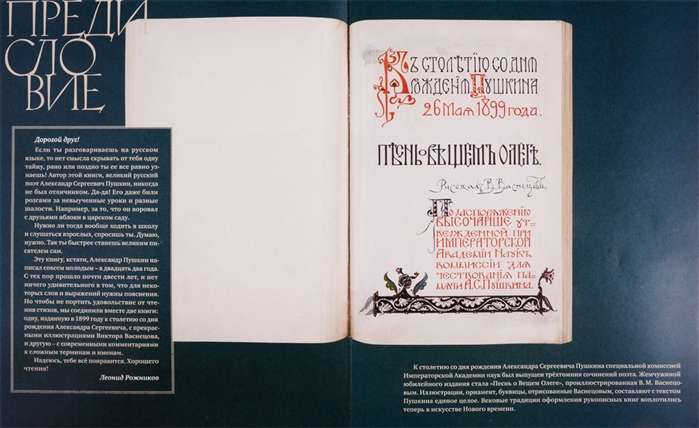 ПРЕДИ
СЛО
ВИЕ
Дорогой друг!
Если ты разговариваешь на русском
языке, то нет смысла скрывать от тебя одну
тайну, рано или поздно ты ее все равно уз-
наешь! Автор этой книги, великий русский
поэт Александр Сергеевич Пушкин, никогда
не был отличником. Да-да! Его даже били
розгами за невыученные уроки и разные
шалости. Например, за то, что он воровал
с друзьями яблоки в царском саду.
Нужно ли тогда вообще ходить в школу
и слушаться взрослых, спросишь ты. Думаю,
нужно. Так ты быстрее станешь великим пи-
сателем сам.
Эту книгу, кстати, Александр Пушкин на-
писал совсем молодым – в двадцать два года.
С тех пор прошло почти двести лет, и нет
ничего удивительного в том, что для неко-
торых слов и выражений нужны пояснения.
Но чтобы не портить удовольствие от чте-
ния стихов, мы соединили вместе две книги:
одну, изданную в 1899 году к столетию со дня
рождения Александра Сергеевича, с прекрас-
ными иллюстрациями Виктора Васнецова,
и другую – с современными комментариями
к сложным терминам и именам.
Надеюсь, тебе всё понравится. Хорошего
чтения!
Леонид Рожников
Къ столѣтію со дня
рожденія Пушкина
26 Мая 1899 года.
Пѣснь о Вѣщемъ Олегѣ.
Рисовалъ В. Васнецовъ
По распоряженію
высочайше ут-
вержденной при
Императорской
Академіи Наукъ
коммиссіи для
чествованія па-
мяти А.С. Пушкина.
К столетию со дня рождения Александра Сергеевича Пушкина специальной комиссией
Императорской Академии наук был выпущен трёхтомник сочинений поэта. Жемчужиной
юбилейного издания стала «Песнь о Вещем Олеге», проиллюстрированная В. М. Васнецо-
вым. Иллюстрации, орнамент, буквицы, отрисованные Васнецовым, составляют с текстом
Пушкина единое целое. Вековые традиции оформления рукописных книг воплотились
теперь в искусстве Нового времени.